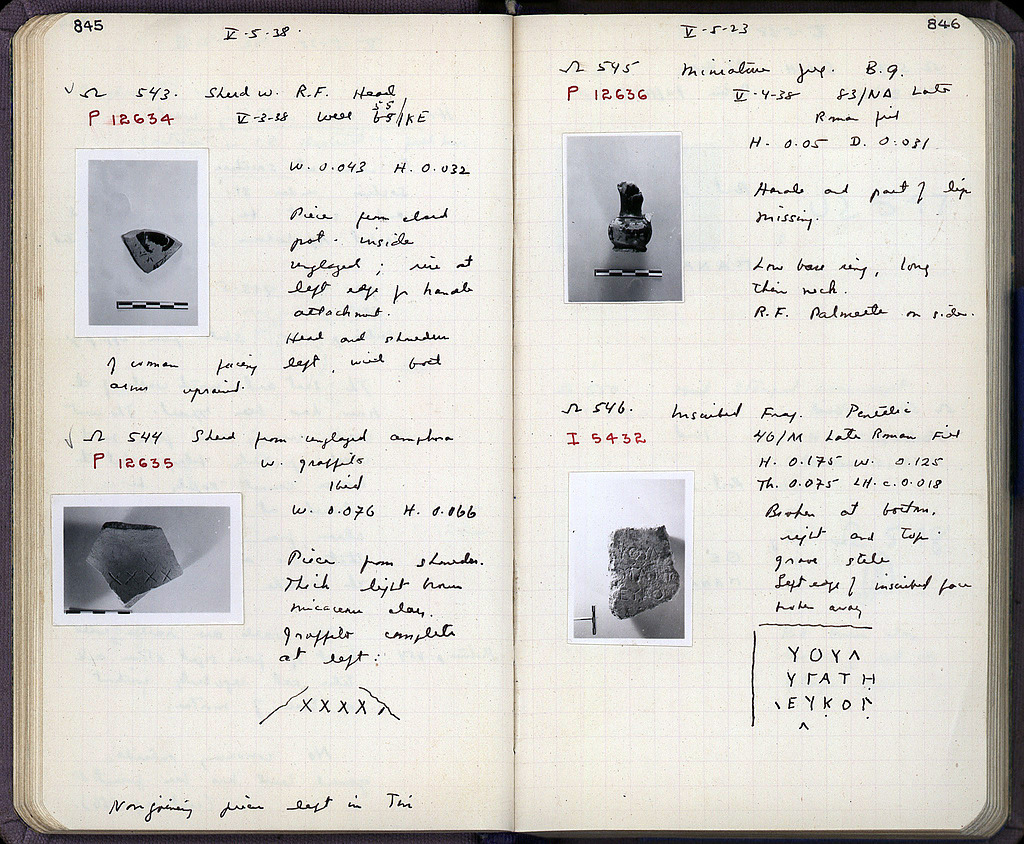 845
V-5-38.
Ω 543. Sherd w. R.F. Head
P 12634 V-3-38 Well 55/KE
W. 0.043 H. 0.032
Piece from closed
pot. inside
unglazed; rise at
left edge for handle
attachment.
Head and shoulders
of woman facing left, with both
arms upraised.
Ω 544 Sherd from unglazed amphora
P 12635 w. graffito
Ibid
W. 0.076 H. 0.066
Piece from shoulder.
Thick light brown
micaceous clay.
Graffito complete
at left:
XXXX
Non joining piece left in Tin
846
V-5-23
Ω 545 Miniature jug. B.G.
P 12636 V-4-38 83/NA Late
Roman fill
H. 0.05 D. 0.031
Handle and part of lip
missing.
Low base ring, long
thin neck.
R.F. Palmette on side.
Ω 546. Inscribed Frag. Pentelic
I 5432 40/M Late Roman Fill
H. 0.175 W. 0.125
Th. 0.075 LH. c. 0.018
Broken at bottom,
right and top.
grave stele
Left edge of inscribed face
broken away
ΥΟΥΛ
ΥΓΑΤΗ
ΕΥΚΟ